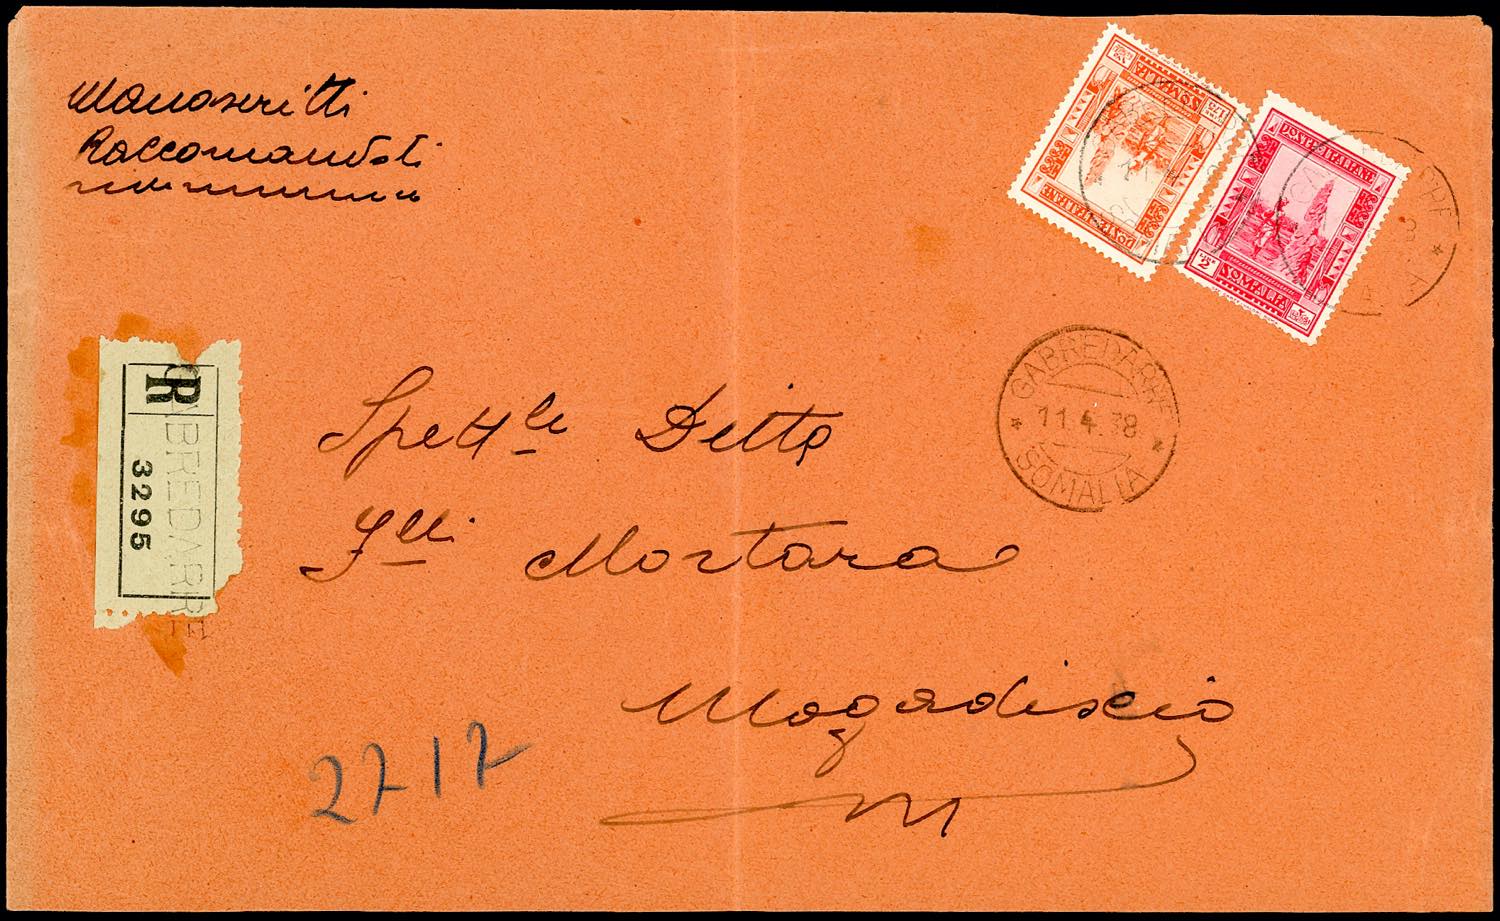 Manoscritti
Raccomandati
POSTE·ITALIANE
SOMALIA
LIRE 1.75
POSTE·ITALIANE
LIRE 2
SOMALIA
GABREDARRE
11.4.38
SOMALIA
R
GABREDARRE
3295
Spett.le Ditta
F.lli Mortara
Mogadiscio
2717